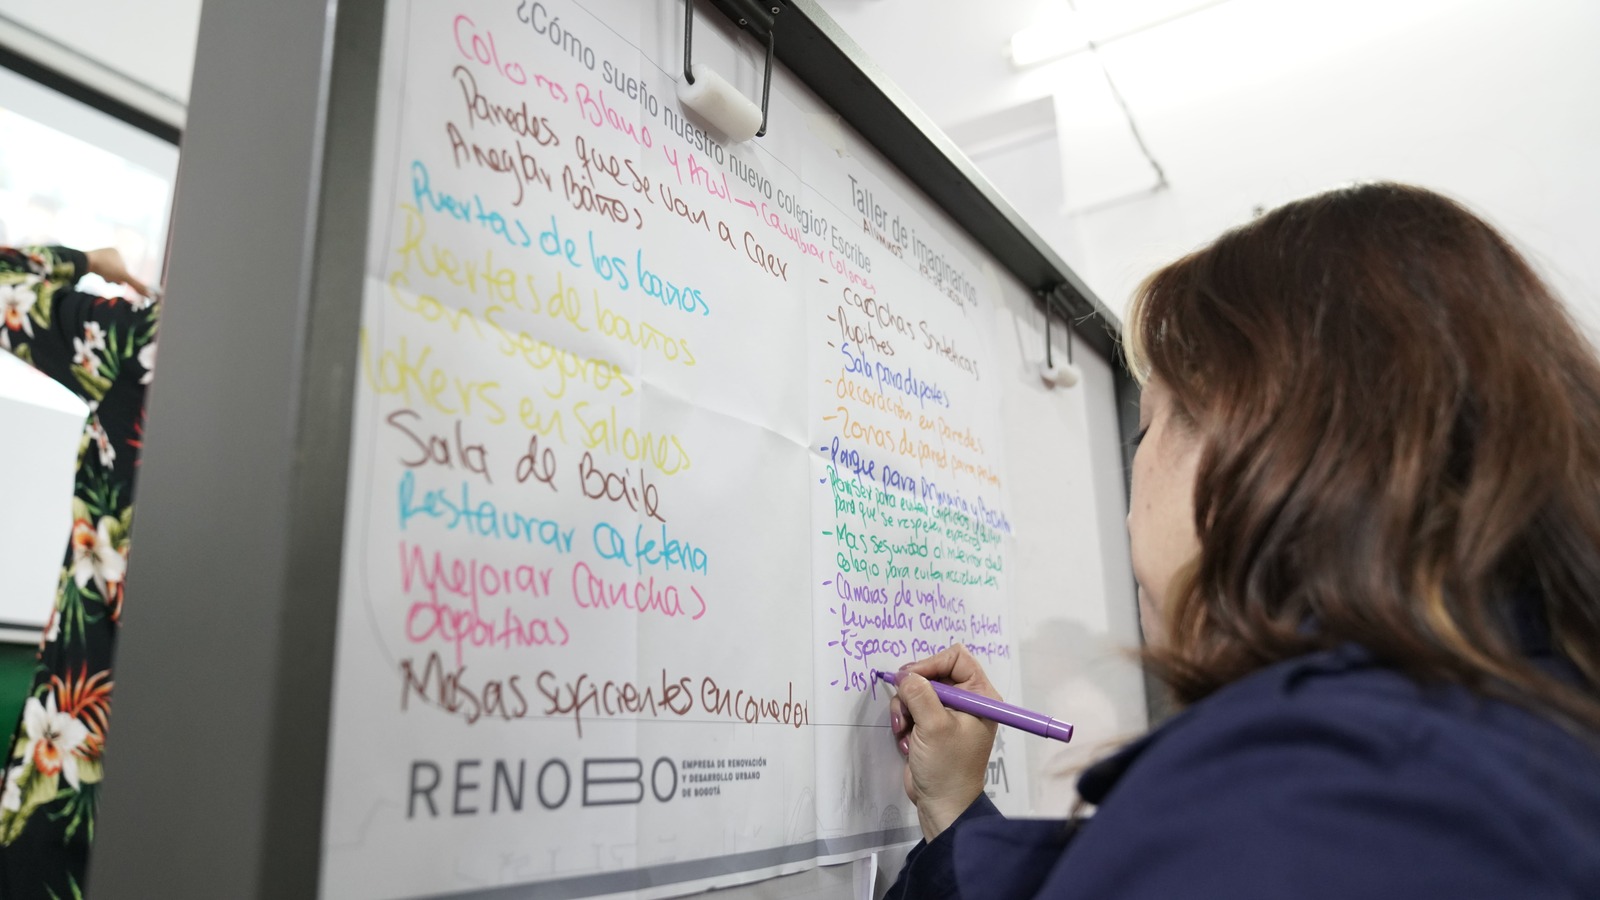 ¿Cómo sueño nuestro nuevo colegio? Escribe
Colores Blanco y Azul → Cambiar Colores
Paredes que se van a caer
Arreglar Baños
Puertas de los baños
Puertas de baños
con seguros
lokers en salones
Sala de Baile
Restaurar Cafeteria
Mejorar Canchas
deportivas
Mesas suficientes en comedor
RENOBO
EMPRESA DE RENOVACIÓN
Y DESARROLLO URBANO
DE BOGOTÁ
Taller de imaginarios
Alumnos
- canchas Sinteticas
- Pupitres
- Sala para deportes
- decoración en paredes
- Zonas de pared para
- Parque para primaria y
para evitar conflictos y
para que se respeten espacios
- Mas seguridad al interior del
colegio para evitar accidentes
- Camaras de vigilancia
- Remodelar canchas futbol
- Espacos para
- las p